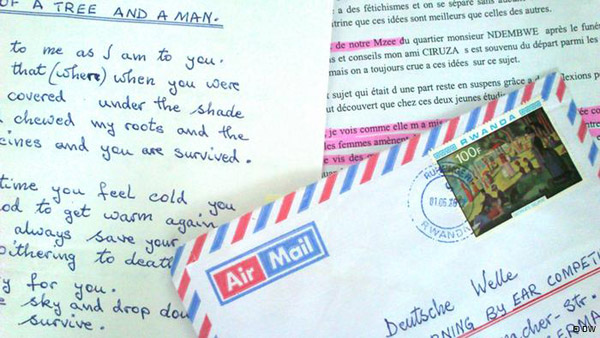 OF A TREE AND A MAN.
to me as I am to you.
that (where) when you were
covered under the shade
chewed my roots and the
cines and you are survived.
time you feel cold you
od to get warm again
always save your
oithering to death
y for you.
e sky and drop dow
survive.
a des fétichismes et on se sépare sans
trine que ces idées sont meilleurs que celles des autres.
de notre Mzee du quartier monsieur NDEMBWE après le funé
ns et conseils mon ami CIRUZA s est souvenu du départ parmi les
mais on a toujours crue a ces idées sur ce sujet.
sujet qui était d une part reste en suspens grâce a
out découvert que chez ces deux jeunes étudi
je vois comme elle m a mis
les femmes amènent
vis des
Air Mail
RWANDA
100F
RWANDA
Deutsche Welle
RNING BY EAR COMPETI
cher-Str.
ERMA
© DW